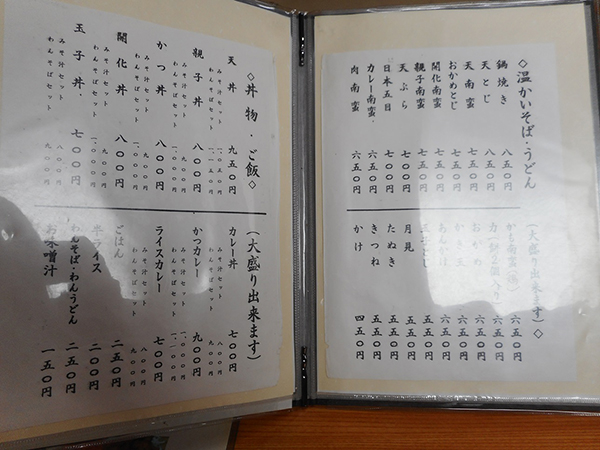 ◇温かいそば・うどん
(大盛り出来ます)◇
鍋焼き 八五〇円
天とじ 八五〇円
天南蛮 七五〇円
おかめとじ 七五〇円
開化南蛮 七五〇円
親子南蛮 七五〇円
天ぷら 七〇〇円
日本五目 七〇〇円
カレー南蛮 六五〇円
肉南蛮 六五〇円
六五〇円
力(餅2個入り) 六五〇円
おかめ 六五〇円
かき玉 六五〇円
あんかけ 六五〇円
玉子とじ 五五〇円
月見 五五〇円
たぬき 五五〇円
きつね 五五〇円
かけ 四五〇円
◇丼物・ご飯◇
(大盛り出来ます)
天丼 九五〇円
みそ汁セット 一、〇五〇円
わんそばセット
親子丼 八〇〇円
みそ汁セット 九〇〇円
わんそばセット 一、〇〇〇円
かつ丼 八〇〇円
みそ汁セット 九〇〇円
わんそばセット 一、〇〇〇円
開化丼 八〇〇円
みそ汁セット 九〇〇円
わんそばセット 一、〇〇〇円
玉子丼 七〇〇円
みそ汁セット 八〇〇円
わんそばセット 九〇〇円
カレー丼 七〇〇円
みそ汁セット 八〇〇円
わんそばセット 九〇〇円
かつカレー 九〇〇円
みそ汁セット
わんそばセット
ライスカレー 七〇〇円
みそ汁セット 八〇〇円
わんそばセット 九〇〇円
ごはん 二五〇円
半ライス 二〇〇円
わんそば・わんうどん 二五〇円
お味噌汁 一五〇円